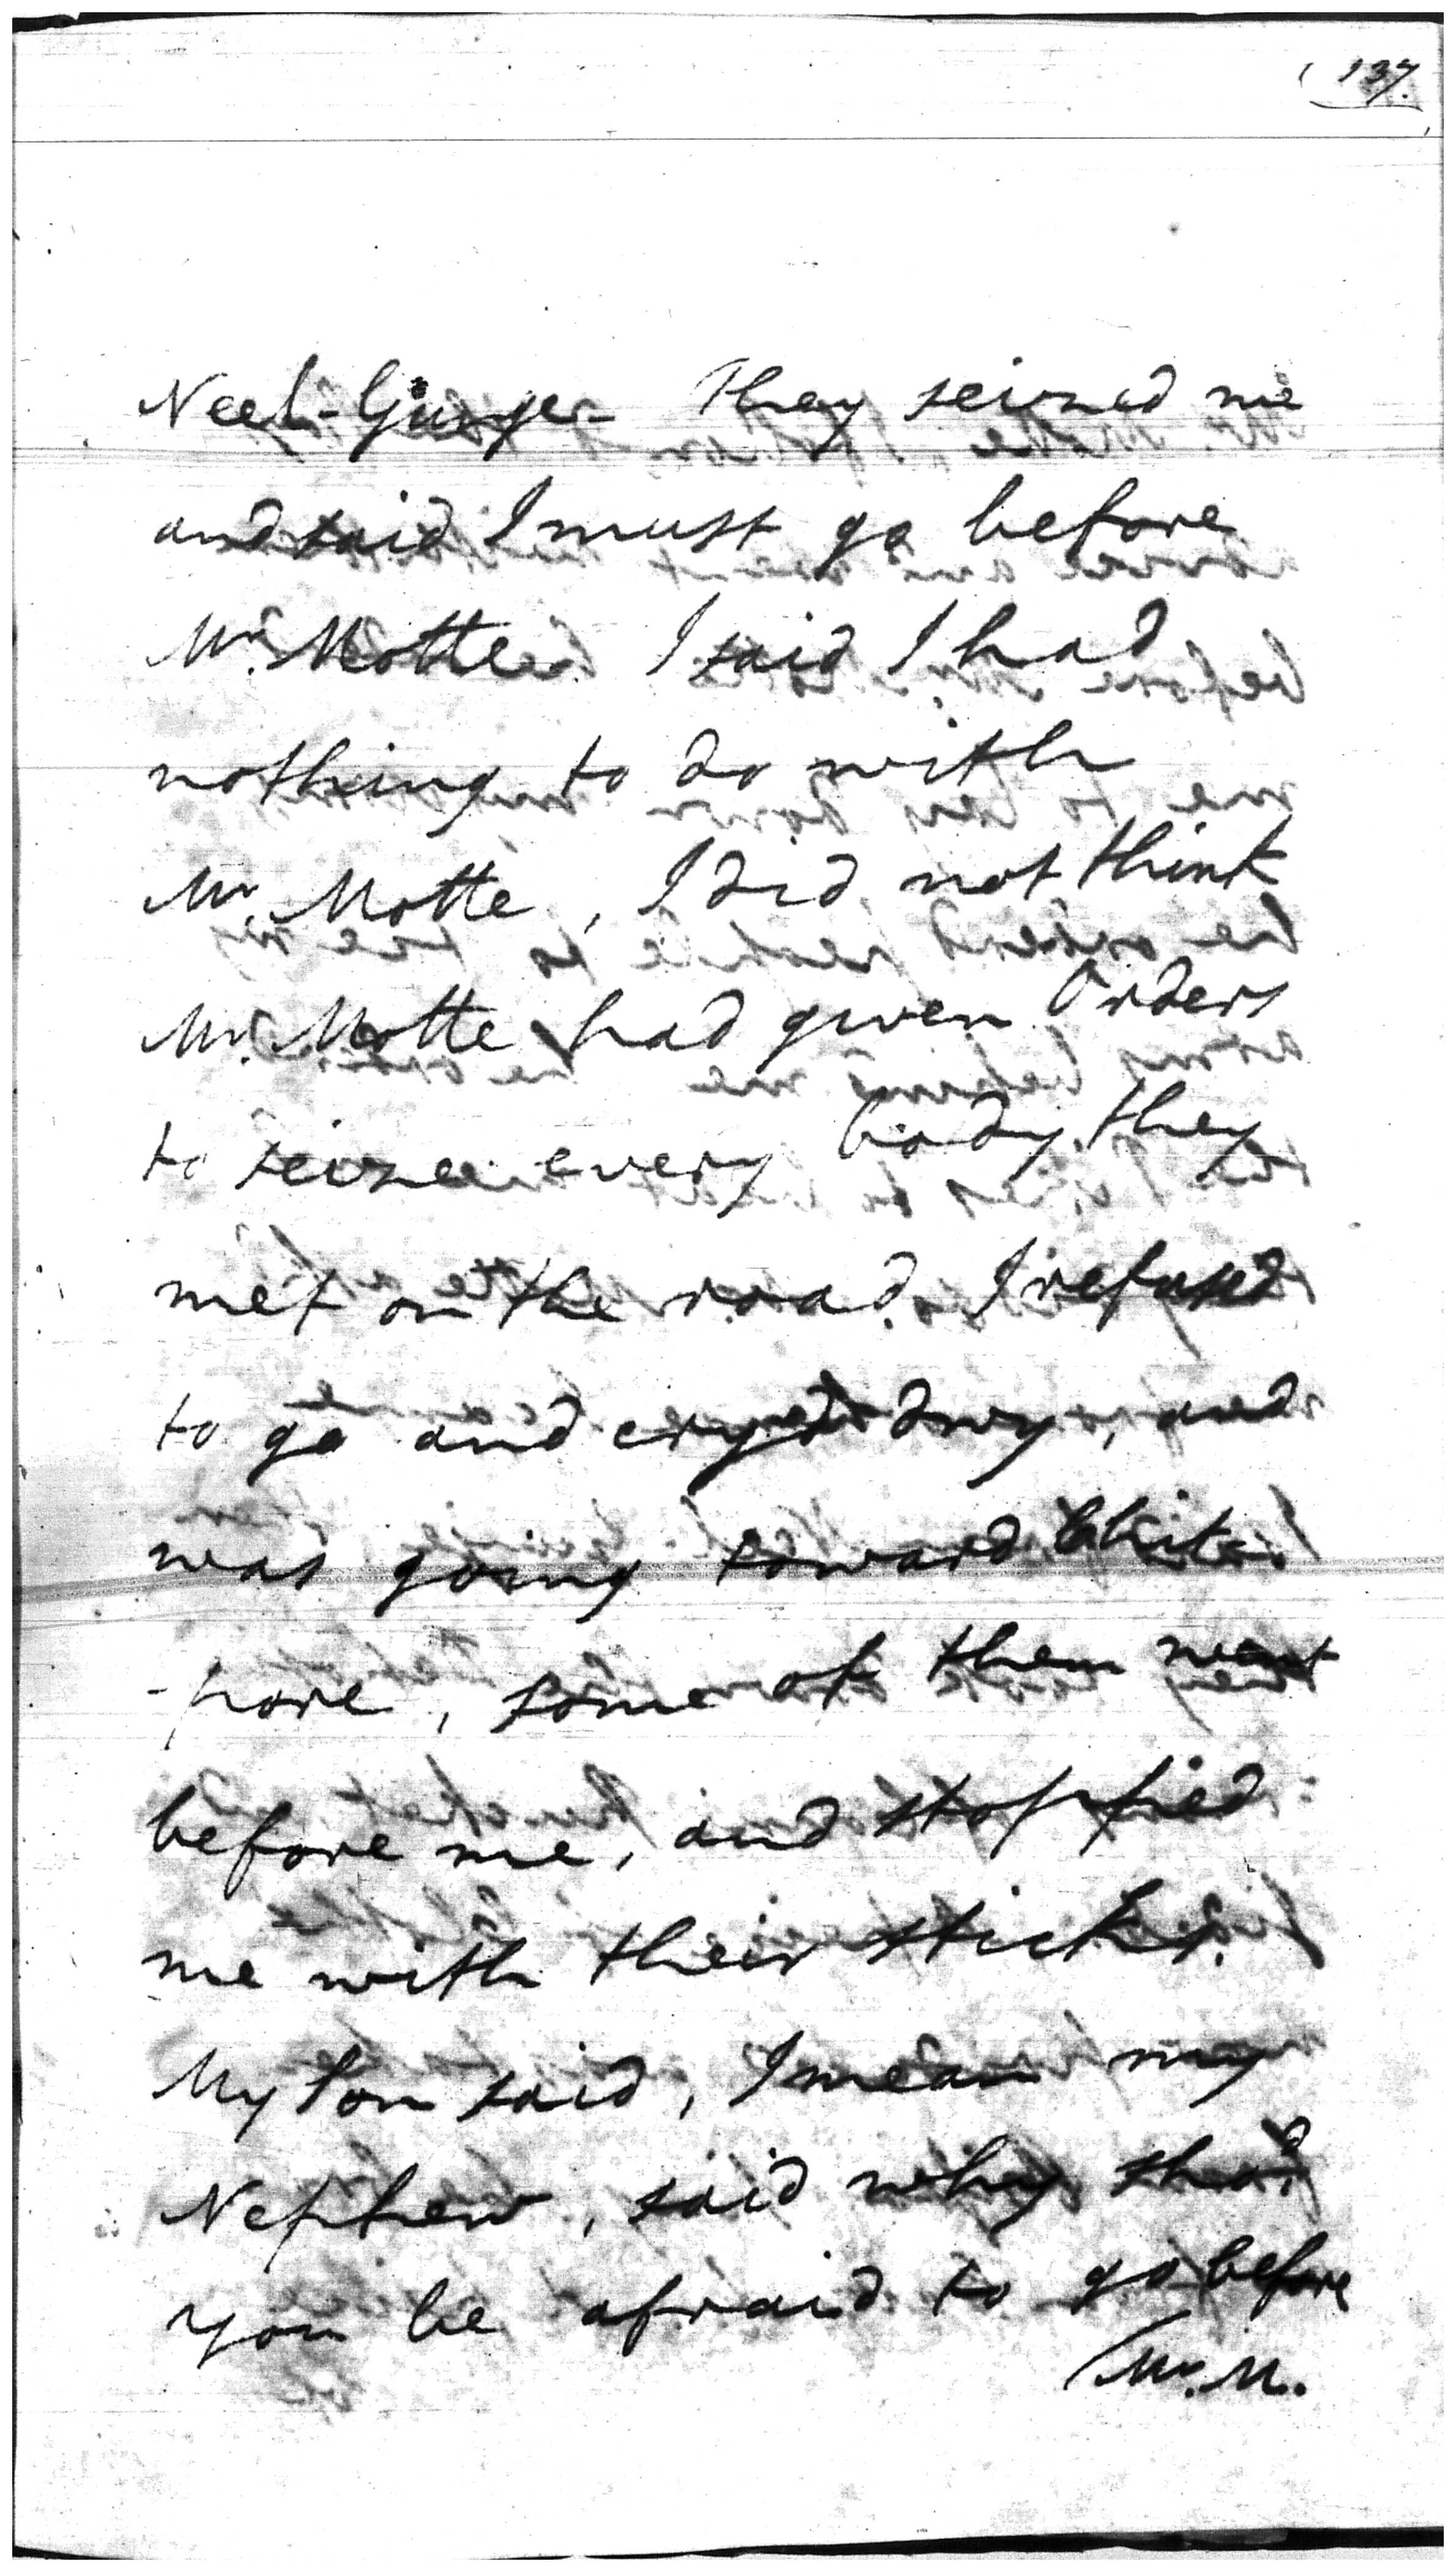 137.
Neel- They seized me
and said I must go before
Mr. Motte I said I had
nothing to do with
Mr. Motte, I did not think
Mr. Motte had given Orders
to seize every body they
met on the road. I refused
to go and cryed dwy, and
was going toward Chite
-pore, some of them went
before me, and stopped
me with their sticks.
My Son said, I mean my
Nephew, said why shod
you be afraid to go before
Mr. M.